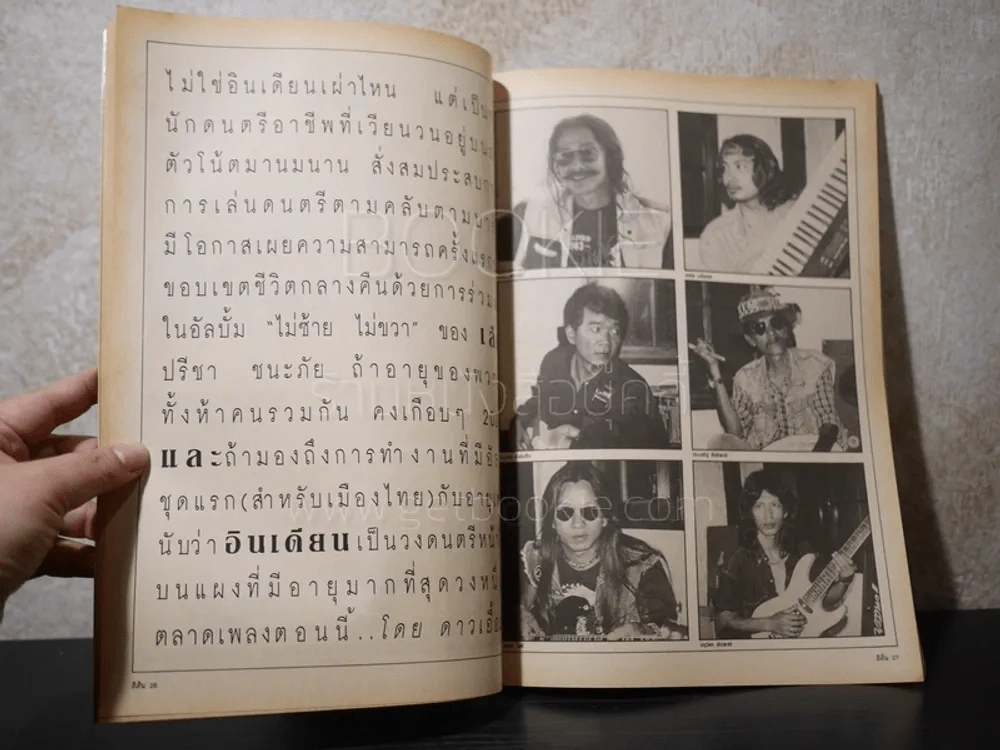 ไม่ใช่อินเดียนเผ่าไหน แต่เป็น
นักดนตรีอาชีพที่เวียนวนอยู่บน
ตัวโน้ตมานมนาน สั่งสมประสบกา
การเล่นดนตรีตามคลับตามบา
มีโอกาสเผยความสามารถครั้งแรก
ขอบเขตชีวิตกลางคืนด้วยการร่วม
ในอัลบั้ม "ไม่ซ้าย ไม่ขวา" ของ เล
ปรีชา ชนะภัย ถ้าอายุของพวก
ทั้งห้าคนรวมกัน คงเกือบๆ 20
และถ้ามองถึงการทำงานที่มีอัล
ชุดแรก(สำหรับเมืองไทย)กับอายุ
นับว่าอินเดียนเป็นวงดนตรีหน้า
บนแผงที่มีอายุมากที่สุดวงหนึ
ตลาดเพลงตอนนี้..โดย ดาวเอื้อ
สีสัน 26
สีสัน 27
BOOKE
www.getbookie.com